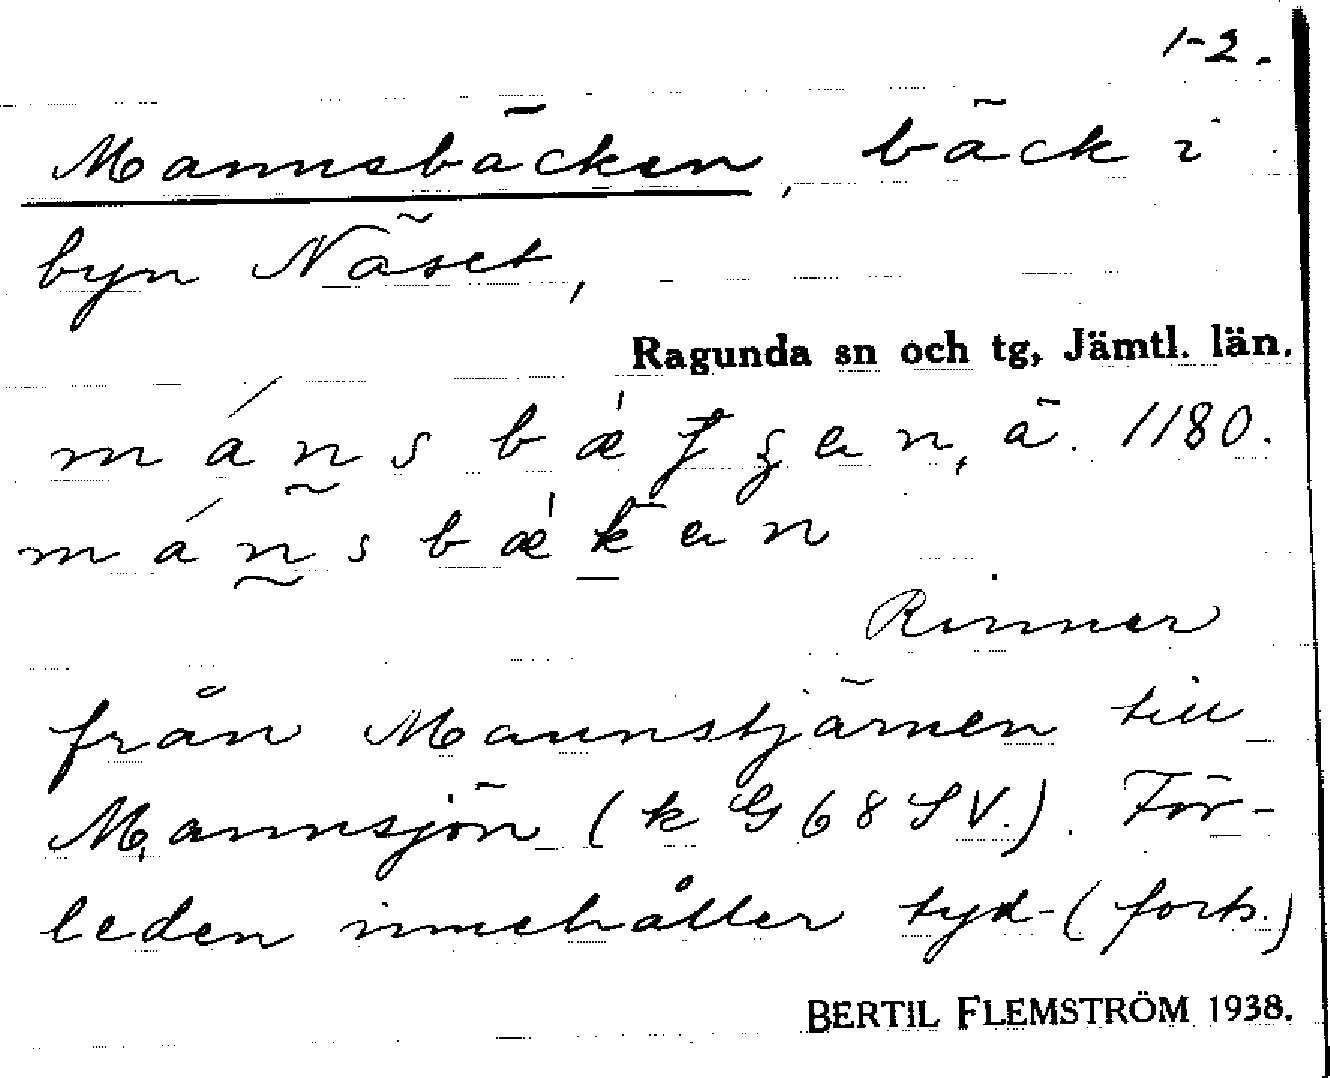 1-2.
Mannsbäcken, bäck i
byn Näset,
Ragunda sn och tg, Jämtl. län.
ä. 1180.
Rinner
från Mannstjärnen till
Mannsjön (k G 68 SV.). För-
leden innehåller tyd- (forts.)
BERTIL FLEMSTRÖM 1938.